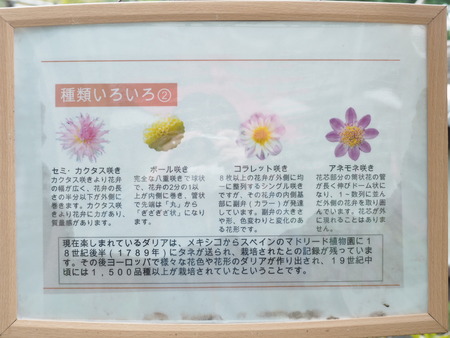 種類いろいろ②
セミ・カクタス咲き
カクタス咲きより花弁
の幅が広く、花弁の長
さの半分以下が外側に
巻きます。カクタス咲
きより花弁に力があり、
質量感があります。
ボール咲き
完全な八重咲きで球状
で、花弁の2分の1以
上が内側に巻き、管状
で先端は「丸」から
「ぎざぎざ状」になり
ます。
コラレット咲き
8枚以上の花弁が外側に均
一に整列するシングル咲き
ですが、その花弁の内側基
部に副弁（カラー）が発達
しています。副弁の大きさ
や形、色変わりと変化のあ
る花形です。
アネモネ咲き
花芯部分の筒状花の管
が長く伸びドーム状に
なり、1〜数列に並ん
だ外側の花弁を取り囲
んでいます。花芯が外
に現れることはありま
せん。
現在楽しまれているダリアは、メキシコからスペインのマドリード植物園に1
8世紀後半（1789年）にタネが送られ、栽培されたとの記録が残っていま
す。その後ヨーロッパで様々な花色や花形のダリアが作り出され、19世紀中
頃には1,500品種以上が栽培されていたということです。